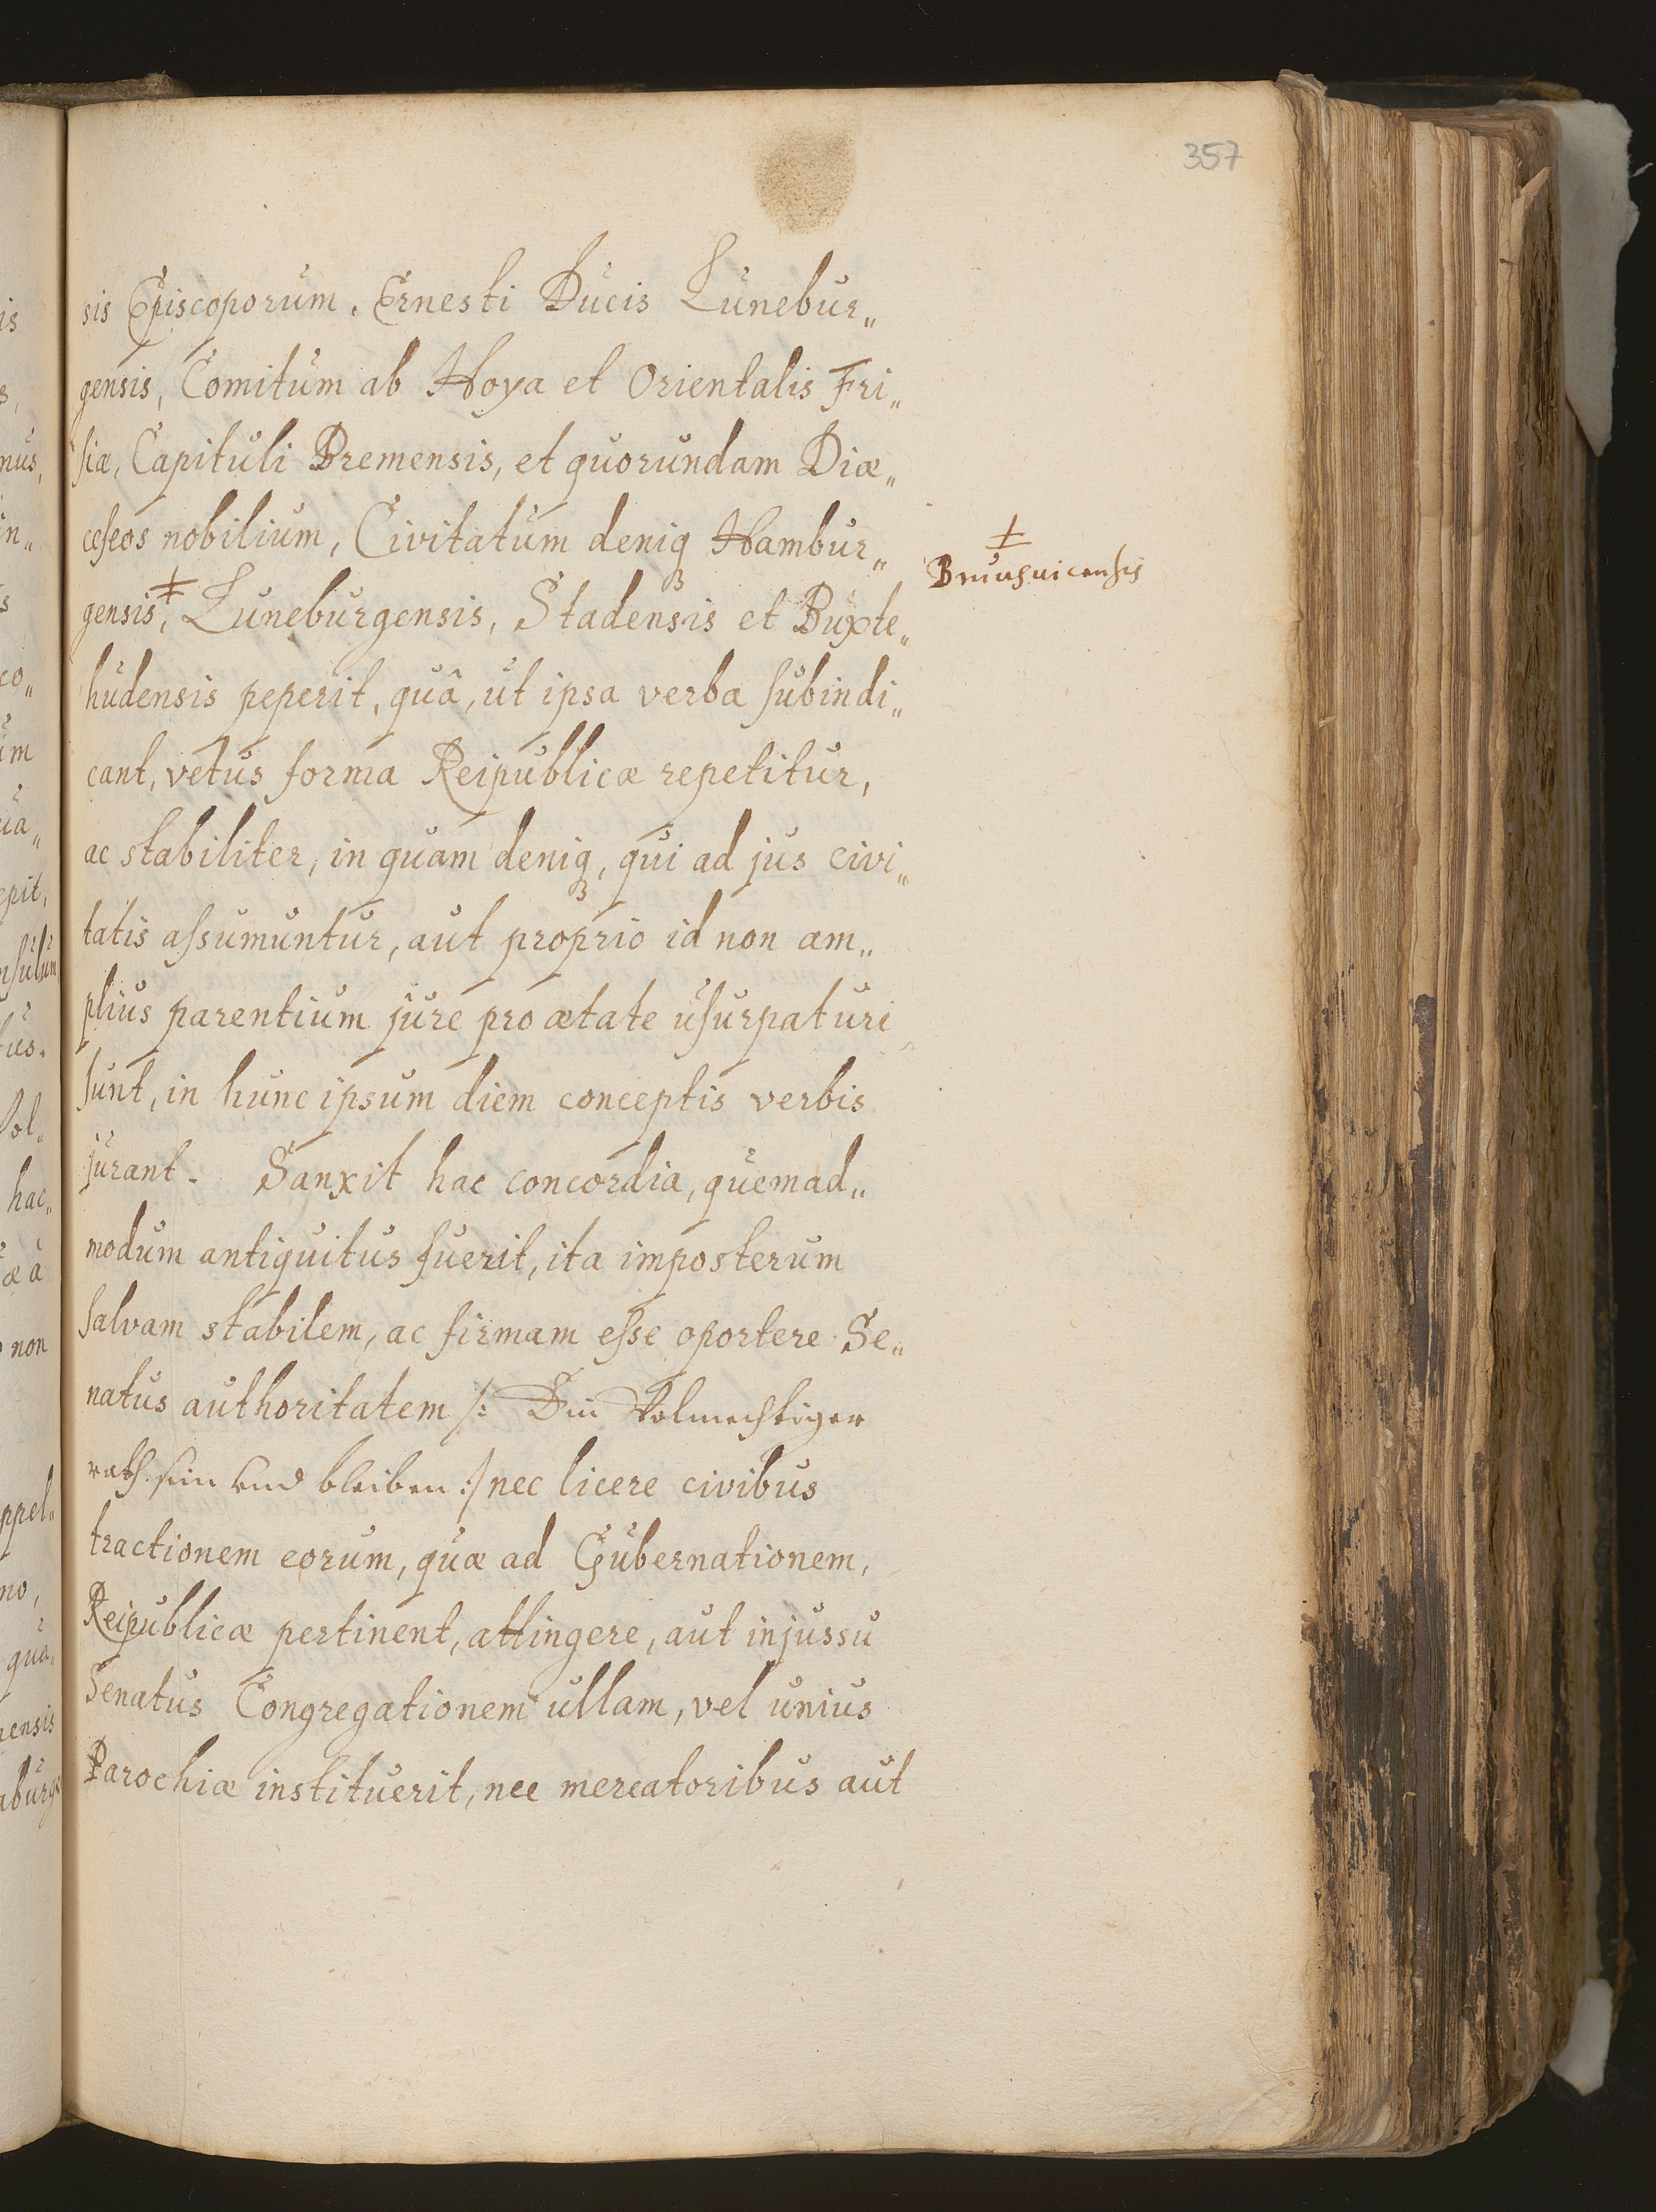 357
sis Episcoporum. Ernesti Ducis Lunebur„
gensis, Comitum ab Hoya et Orientalis Fri„
siæ, Capituli Bremensis, et quorundam Diæ„
ceseos nobilium, Civitatum deniqꝫ Hambur„
‡
Brunsuicensis
gensis,‡ Luneburgensis, Stadensis et Buxte„
hudensis peperit, quâ, ut ipsa verba subindi„
cant, vetus forma Reipublicæ repetitur,
ac stabiliter, in quam deniqꝫ, qui ad jus civi„
tatis assumuntur, aut proprio id non am„
plius parentium jure pro ætate usurpaturi
sunt, in hunc ipsum diem conceptis verbis
jurant. Sanxit hac concordia, quemad„
modum antiquitus fuerit, ita imposterum
salvam stabilem, ac firmam esse oportere Se„
natus authoritatem /: Ein Volmechtiger
rath sein und bleiben :/ nec licere civibus
tractionem eorum, quæ ad Gubernationem,
Reipublicæ pertinent, attingere, aut injussu
Senatus Congregationem ullam, vel unius
Parochiæ instituerit, nec mercatoribus aut